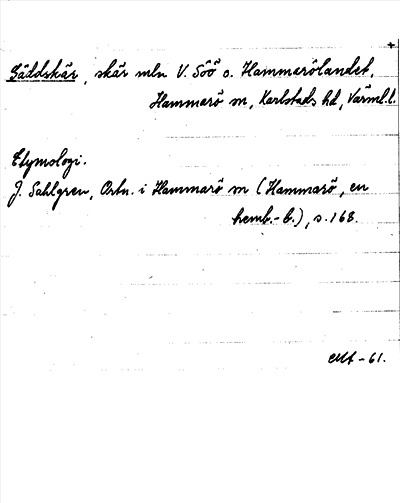 +
Gäddskär, skär mln V. Söö o. Hammarölandet,
Hammarö sn, Karlstads hd, Värml. l.
Etymologi.
J. Sahlgren, Ortn. i Hammarö sn (Hammarö, en
hemb.-b.), s. 168.
-61.